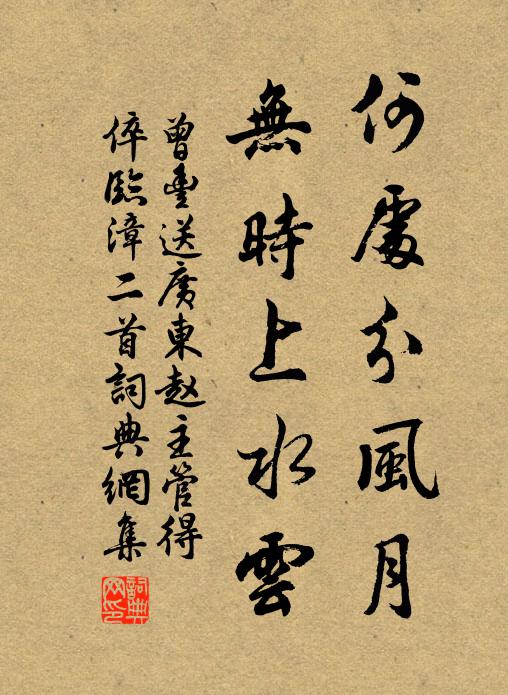 何處分風月
無時上水雲
曾豐送廣東赵主管得
倅臨漳二首詞典網集
詞典網印